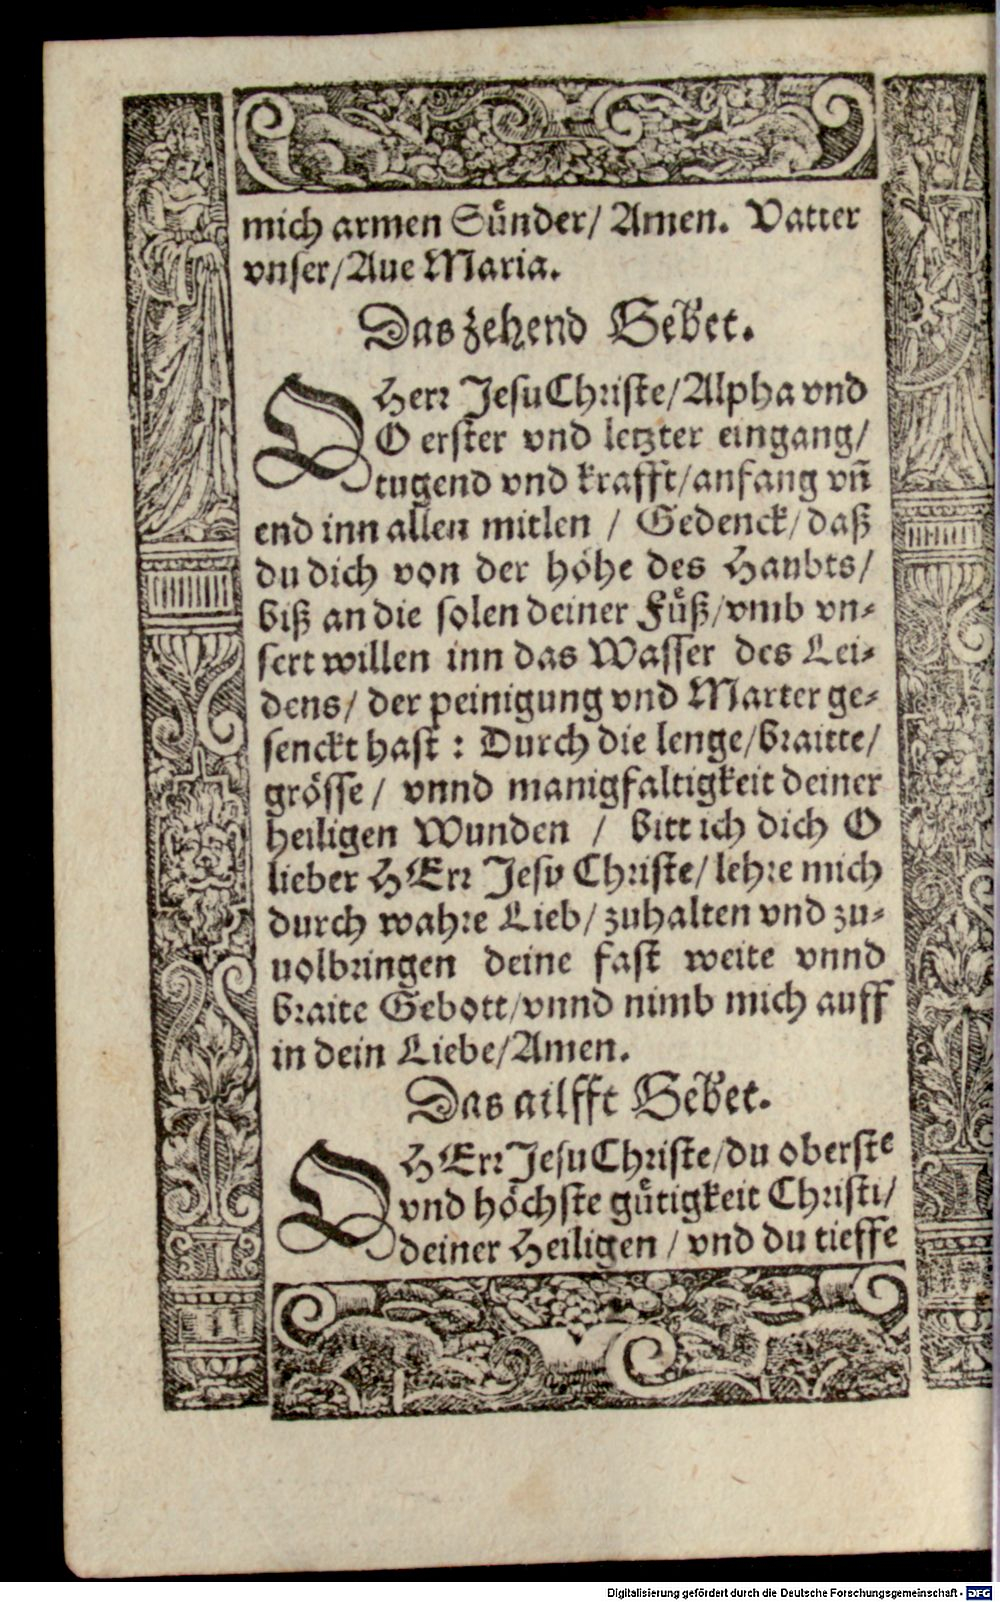 mich armen Sünder/ Amen. Vatter
vnser/Aue Maria.
Das zehend Gebet.
O Herr Jesu Christe/Alpha vnd
O erster vnd letzter eingang/
tugend vnd krafft/anfang vñ
end inn allen mitlen / Gedenck/ daß
du dich von der höhe des Haubts/
biß an die solen deiner Füß/vmb vn-
sert willen inn das Wasser des Lei-
dens/ der peinigung vnd Marter ge-
senckt hast : Durch die lenge/braitte/
grösse / vnnd manigfaltigkeit deiner
heiligen Wunden / bitt ich dich O
lieber HErr Jesu Christe/ lehre mich
durch wahre Lieb/ zuhalten vnd zu-
uolbringen deine fast weite vnnd
braite Gebott/vnnd nimb mich auff
in dein Liebe/Amen.
Das ailfft Gebet.
O HErr Jesu Christe/du oberste
vnd höchste gütigkeit Christi/
deiner Heiligen / vnd du tieffe
Digitalisierung gefördert durch die Deutsche Forschungsgemeinschaft - DFG